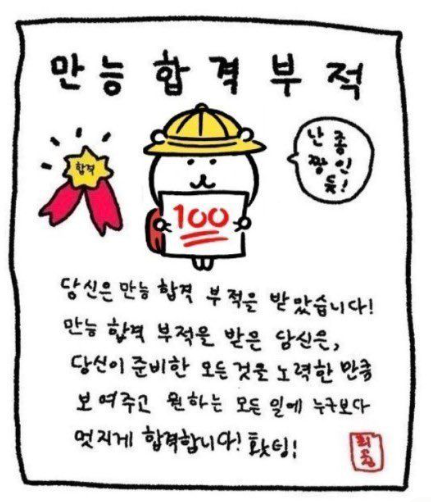 만능 합격 부적
합격
난 좀
짱인
듯!
100
당신은 만능 합격 부적을 받았습니다!
만능 합격 부적을 받은 당신은,
당신이 준비한 모든 것을 노력한 만큼
보여주고 원하는 모든 일에 누구보다
멋지게 합격합니다! 홧팅!